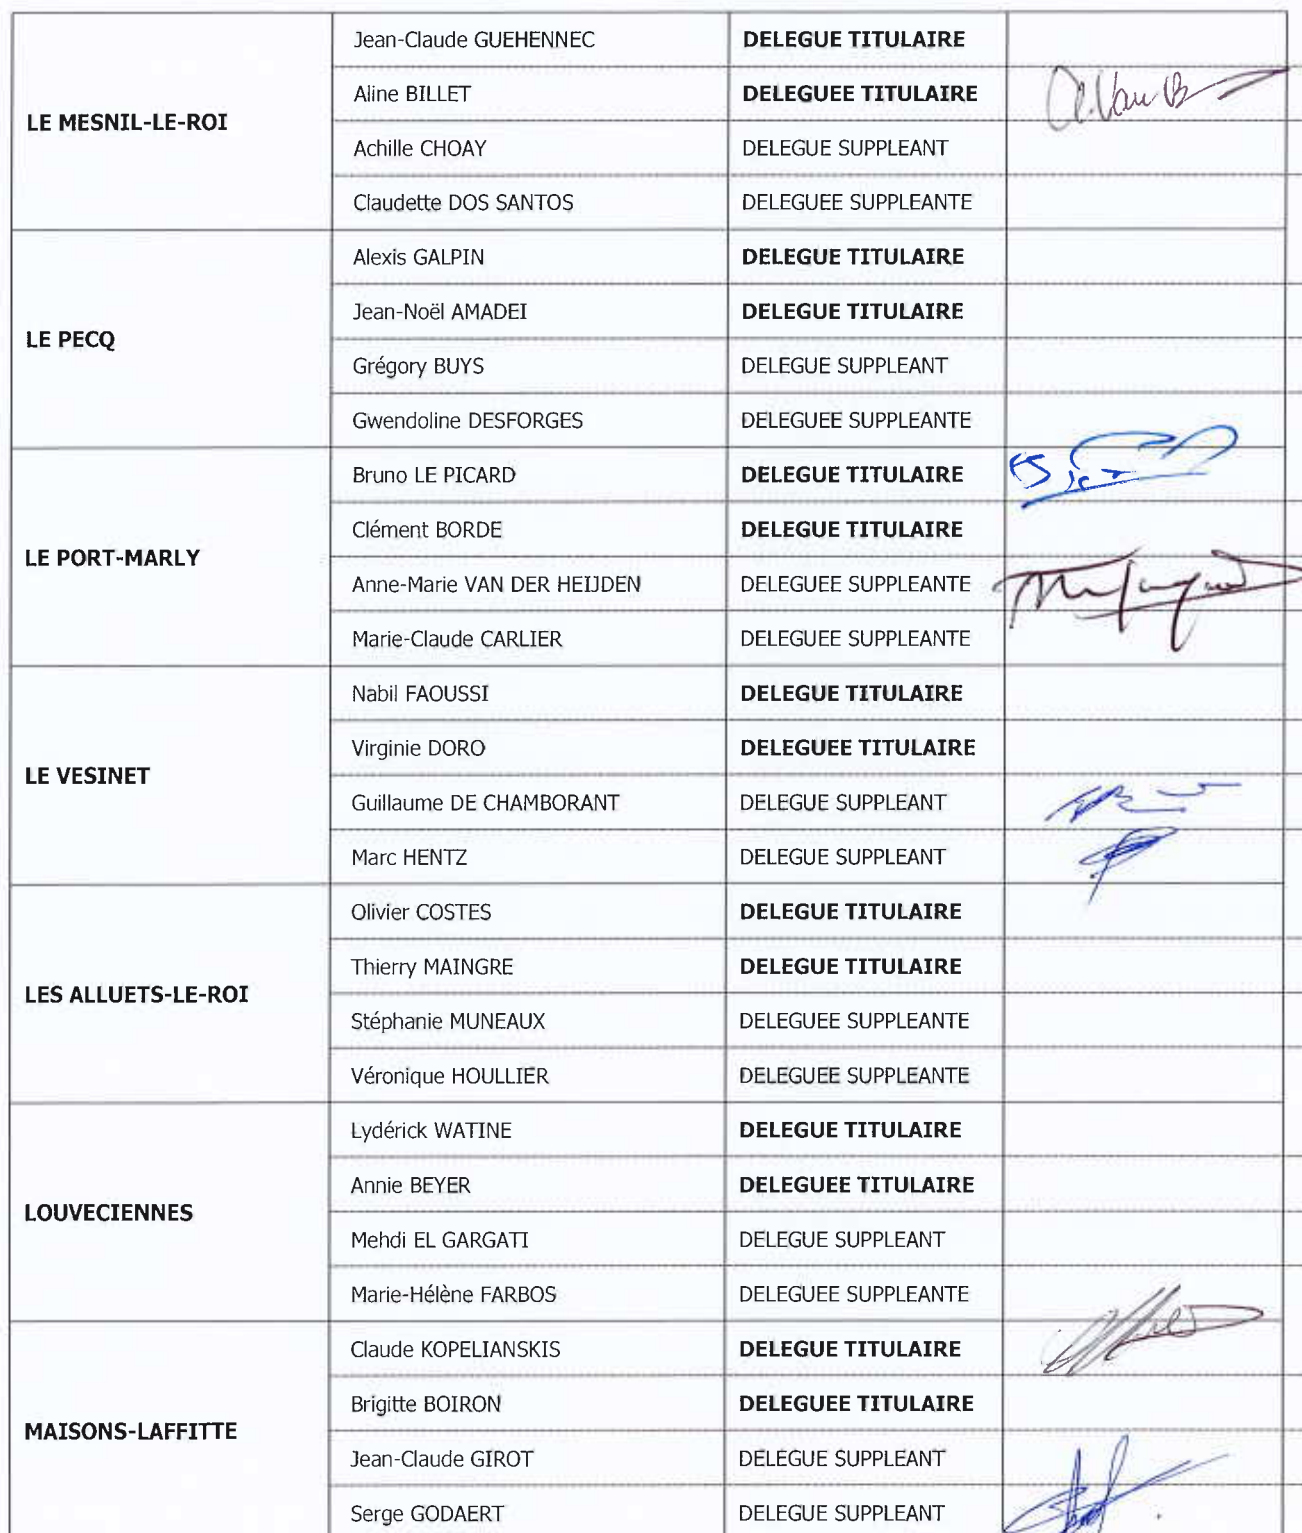 LE MESNIL-LE-ROI
Jean-Claude GUEHENNEC DELEGUE TITULAIRE
Aline BILLET DELEGUEE TITULAIRE
Achille CHOAY DELEGUE SUPPLEANT
Claudette DOS SANTOS DELEGUEE SUPPLEANTE
LE PECQ
Alexis GALPIN DELEGUE TITULAIRE
Jean-Noël AMADEI DELEGUE TITULAIRE
Grégory BUYS DELEGUE SUPPLEANT
Gwendoline DESFORGES DELEGUEE SUPPLEANTE
LE PORT-MARLY
Bruno LE PICARD DELEGUE TITULAIRE
Clément BORDE DELEGUE TITULAIRE
Anne-Marie VAN DER HEIJDEN DELEGUEE SUPPLEANTE
Marie-Claude CARLIER DELEGUEE SUPPLEANTE
LE VESINET
Nabil FAOUSSI DELEGUE TITULAIRE
Virginie DORO DELEGUEE TITULAIRE
Guillaume DE CHAMBORANT DELEGUE SUPPLEANT
Marc HENTZ DELEGUE SUPPLEANT
LES ALLUETS-LE-ROI
Olivier COSTES DELEGUE TITULAIRE
Thierry MAINGRE DELEGUE TITULAIRE
Stéphanie MUNEAUX DELEGUEE SUPPLEANTE
Véronique HOULLIER DELEGUEE SUPPLEANTE
LOUVECIENNES
Lydérick WATINE DELEGUE TITULAIRE
Annie BEYER DELEGUEE TITULAIRE
Mehdi EL GARGATI DELEGUE SUPPLEANT
Marie-Hélène FARBOS DELEGUEE SUPPLEANTE
MAISONS-LAFFITTE
Claude KOPELIANSKIS DELEGUE TITULAIRE
Brigitte BOIRON DELEGUEE TITULAIRE
Jean-Claude GIROT DELEGUE SUPPLEANT
Serge GODAERT DELEGUE SUPPLEANT